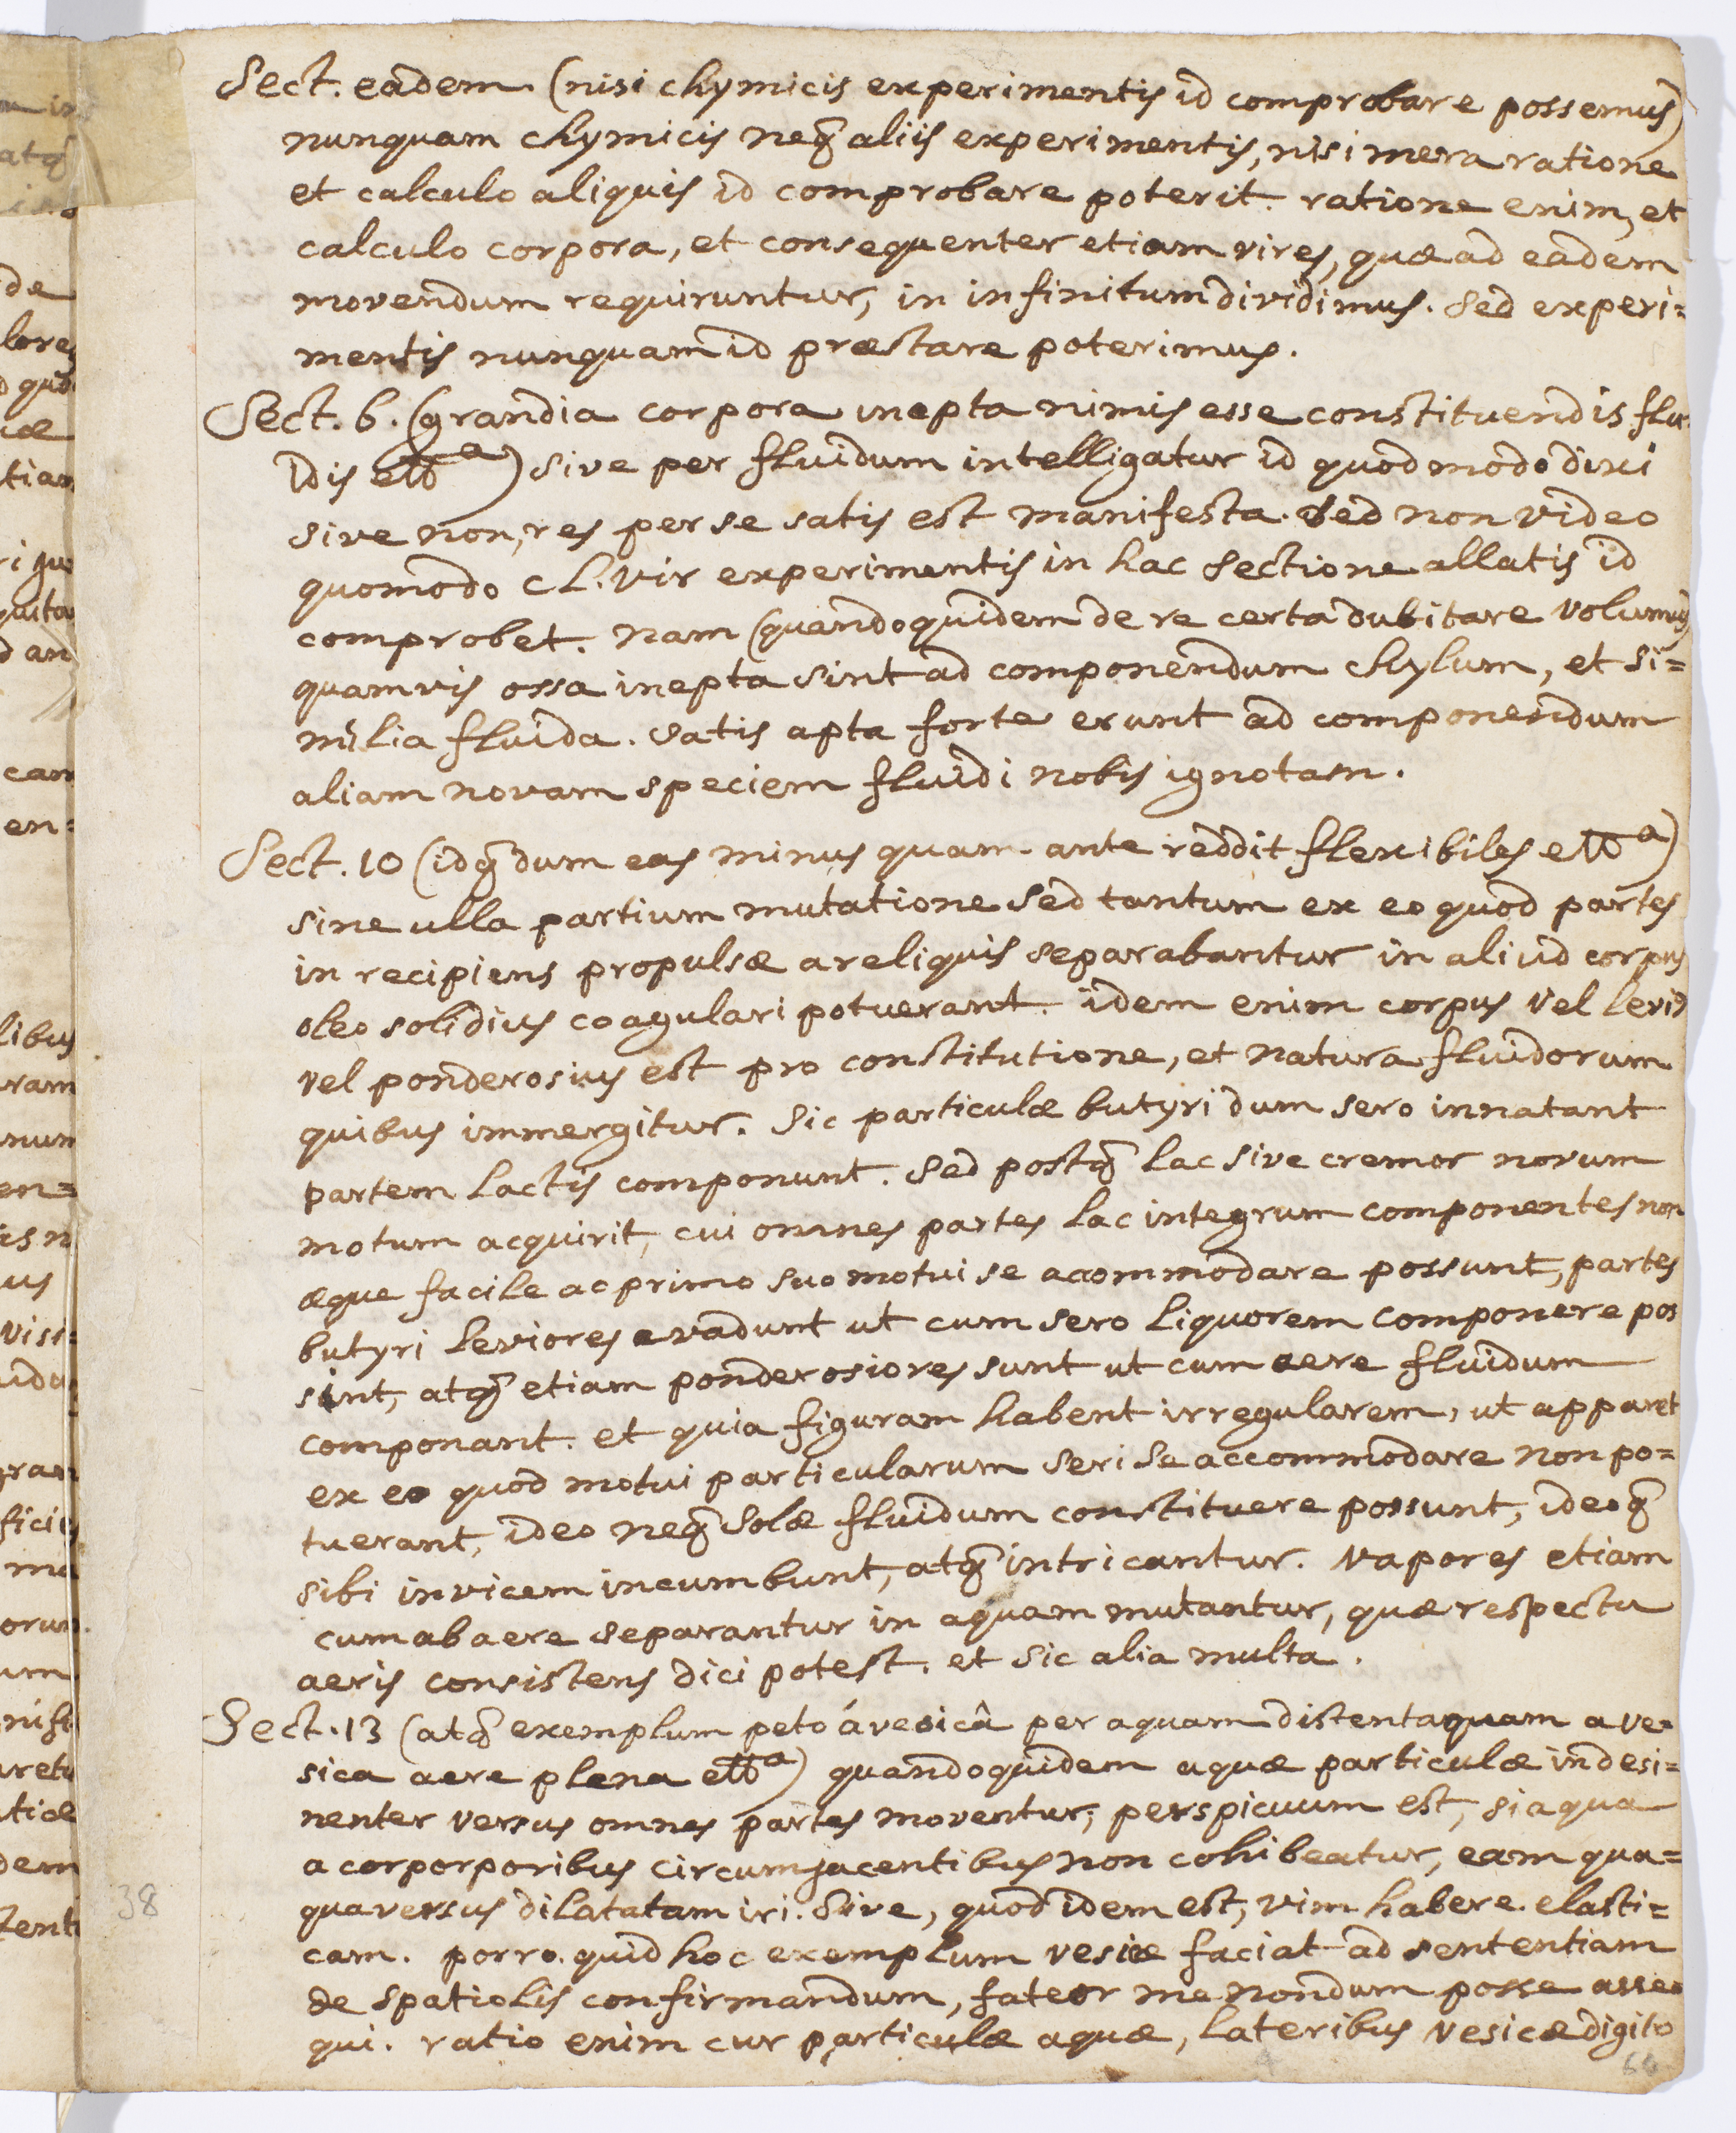 Sect. eadem (nisi chymicis experimentis id comprobare possemus)
nunquam chymicis neq̃ aliis experimentis, nisi mera ratione
et calculo aliquis id comprobare poterit. ratione enim, et
calculo corpora, et consequenter etiam vires, quæ ad eadem
movendum requiruntur, in infinitum dividimus. Sed experi=
mentis nunquam id præstare poterimus.
Sect. 6. (grandia corpora inepta nimis esse constituendis flu-
idis etta) sive per fluidum intelligatur id quod modo dixi
sive non, res per se satis est manifesta. Sed non video
quomodo cl. vir experimentis in hac sectione allatis id
comprobet. nam (quandoquidem de re certa dubitare volumus)
quamvis ossa inepta sint ad componendum chylum, et si=
milia fluida. satis apta forte erunt ad componendum
aliam novam speciem fluidi nobis ignotam.
Sect. 10 (idq̃ dum eas minus quam ante reddit flexibiles etta)
sine ulla partium mutatione sed tantum ex eo quod partes
in recipiens propulsæ a reliquis separabantur in aliud corpus
oleo solidius coagulari potuerant. idem enim corpus vel levius
vel ponderosius est pro constitutione, et natura fluidorum
quibus immergitur. Sic particulæ butyri dum sero innatant
partem lactis componunt. Sed postq̃ lac sive cremor novum
motum acquirit, cui omnes partes lac integrum componentes non
æque facile ac primo suo motui se acommodare possunt, partes
butyri leviores evadunt ut cum sero liquorem componere pos
sint, atq̃ etiam ponderosiores sunt ut cum aere fluidum
componant. et quia figuram habent irregularem, ut apparet
ex eo quod motui particularum seri se accommodare non po=
tuerant, ideo neq̃ solæ fluidum constituere possunt, ideoq̃
sibi invicem incumbunt, atq̃ intricantur. Vapores etiam
cum ab aere separantur in aquam mutantur, quæ respectu
aeris consistens dici potest. et sic alia multa.
Sect. 13 (atq̃ exemplum peto á vesicâ per aquam distenta quam a ve=
sica aere plena etta) quandoquidem aquæ particulæ indesi=
nenter versus omnes partes moventur; perspicuum est, si aqua
a corporporibus circumjacentibus non cohibeatur, eam qua=
quaversus dilatatam iri. Sive, quod idem est, vim habere elasti=
cam. porro. quid hoc exemplum vesicæ faciat ad sententiam
de spatiolis confirmandum, fateor me nondum posse asse=
qui. ratio enim cur particulæ aquæ, lateribus vesicæ digito
38